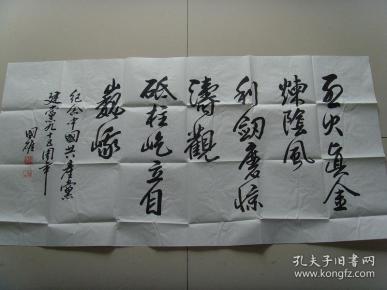 烈火真金
煉陰風
利劍磨惊
濤觀
砥柱屹立自
巍峨
纪念中國共產黨
建黨九十五周年
孔夫子旧书网
www.kongfz.com